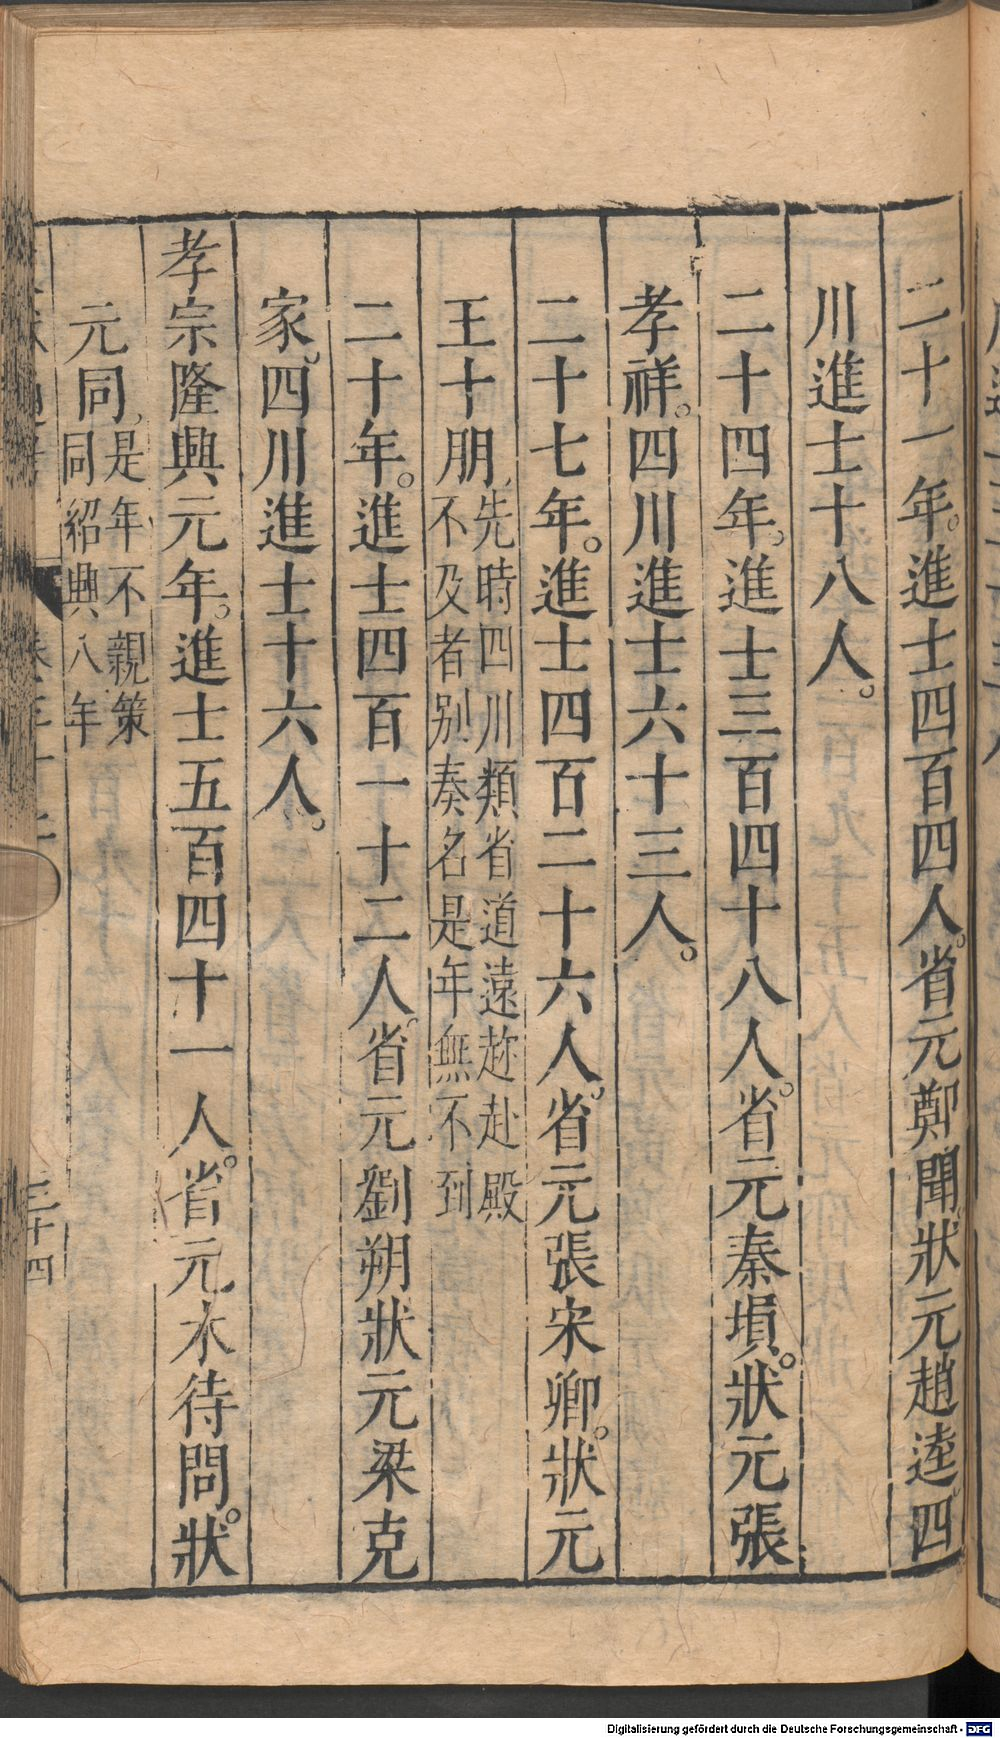 二十一年。進士四百四人。省元鄭聞狀元趙逵四
川進士十八人。
二十四年。進士三百四十八人。省元秦塤。狀元張
孝祥。四川進士六十三人。
二十七年。進士四百二十六人。省元張宋卿。狀元
王十朋、先時四川類省道遠趂赴殿
不及者別奏名是年無不到
二十年。進士四百一十二人。省元劉朔狀元梁克
家。四川進士十六人。
孝宗隆興元年。進士五百四十一人。省元木待問。狀
元同、是年不親策
同紹興八年
三十四
Digitalisierung gefördert durch die Deutsche Forschungsgemeinschaft - DFG